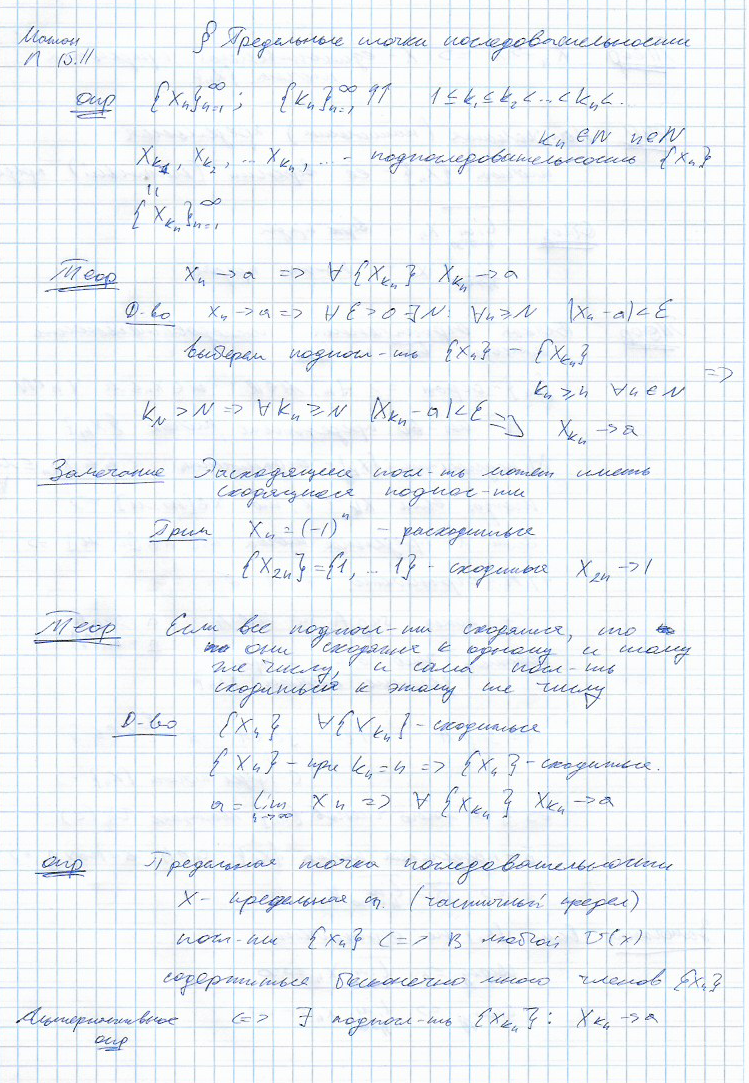 Матан § Предельные точки последовательности
Л 15.11
опр {Xn}∞n=1 ; {kn}∞n=1 ↑↑ 1 ≤ k1 ≤ k2 < ... < kn < .
kn ∈ N n ∈ N
Xk1, Xk2, ... Xkn, ... - подпоследовательность {Xn}
"
{Xkn}∞n=1
Теор Xn → a => ∀ {Xkn} Xkn → a
D-во Xn → a => ∀ ε > 0 ∃ N: ∀n ≥ N |Xn - a| < ε
Выберем подпосл-ть {Xn} - {Xkn}
kn ≥ n ∀n ∈ N =>
kN > N => ∀ kn ≥ N |Xkn - a| < ε => Xkn → a
Замечание Расходящиеся посл-ть может иметь
сходящиеся подпос-ти
Прим Xn = (-1)^n - расходиться
{X2n} = {1, ... 1} - сходиться X2n → 1
Теор Если все подпосл-ти сходятся, то
они сходятся к одному и тому
же числу, и сама посл-ть
сходиться к этому же числу
D-во {Xn} ∀{Xkn} - сходиться
{Xn} - при kn = n => {Xn} - сходиться.
a = lim n→∞ Xn => ∀ {Xkn} Xkn → a
опр Предельная точка последовательности
X - предельная т. (частичный предел)
посл-ти {Xn} <=> В любой U(x)
содержиться бесконечно много членов {Xn}
Альтернативное <=> ∃ подпосл-ть {Xkn}: Xkn → a
опр